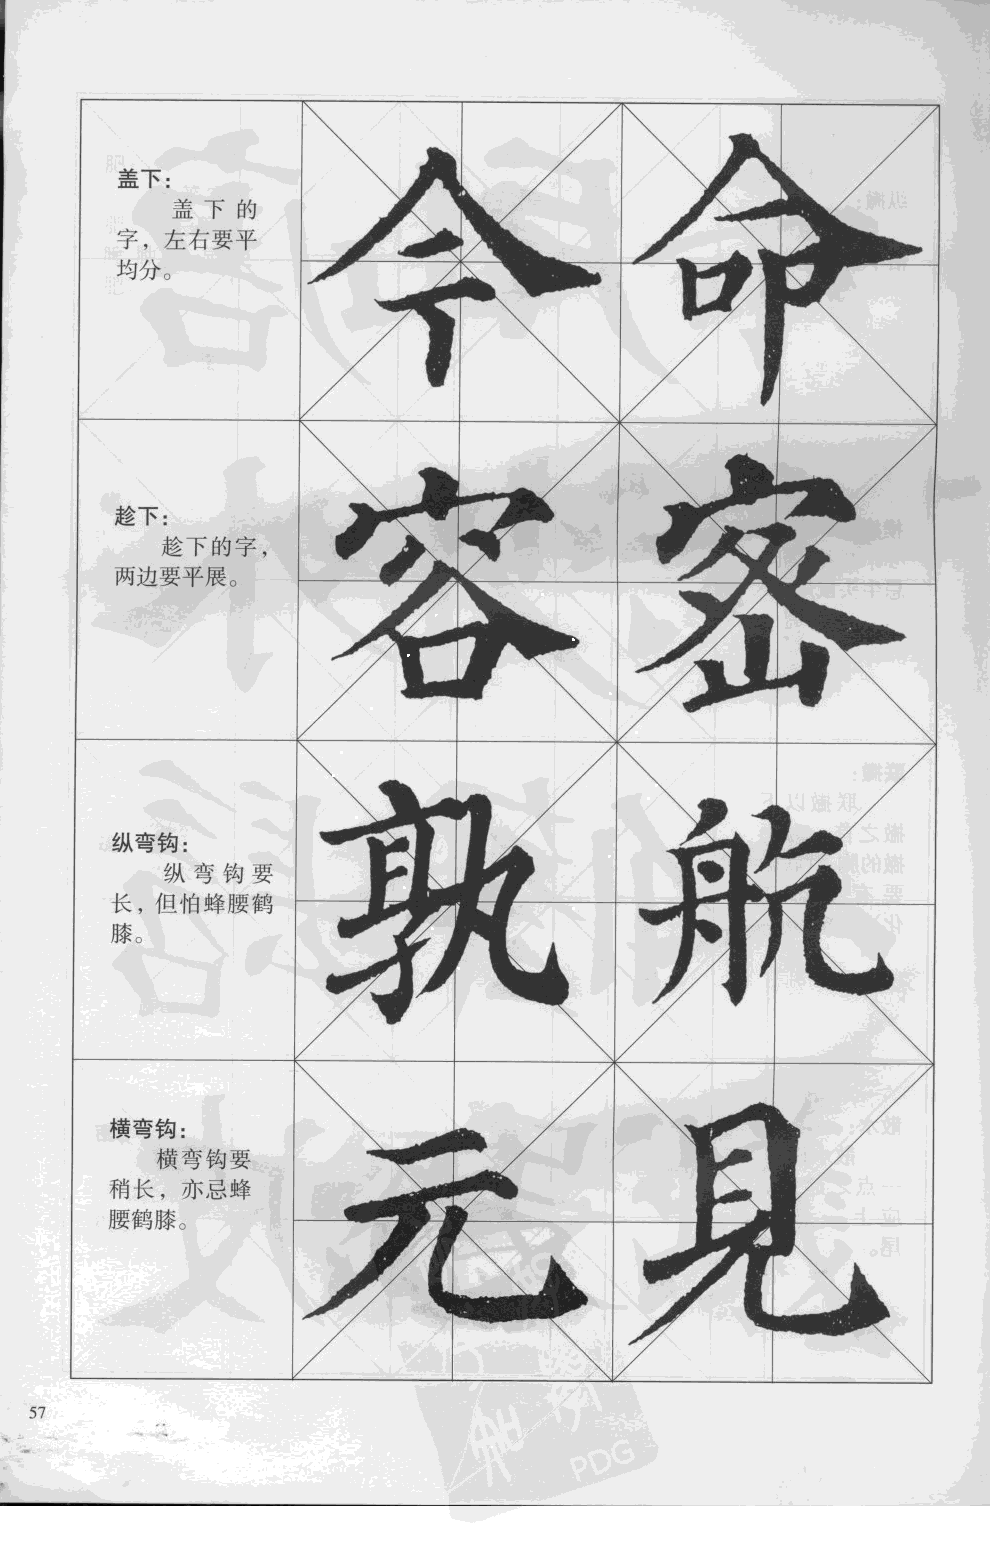 盖下：
盖下的
字，左右要平
均分。
今 命
趁下：
趁下的字，
两边要平展。
容 密
纵弯钩：
纵弯钩要
长，但怕蜂腰鹤
膝。
孰 航
横弯钩：
横弯钩要
稍长，亦忌蜂
腰鹤膝。
元 見
57
PDG